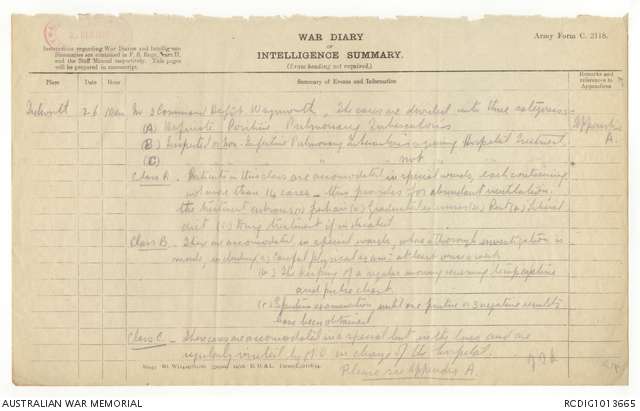 WAR DIARY
OF
INTELLIGENCE SUMMARY.
(Erase heading not required.)
Army Form C. 2118.
Instructions regarding War Diaries and Intelligence
Summaries are contained in F. S. Regs., Part II.
and the Staff Manual respectively. Title pages
will be prepared in manuscript.
Place
Date
Hour
Summary of Events and Information
Remarks and
references to
Appendices
2.6 Command Depôt Weymouth. The cases are divided into three categories
Appendix
A.
(A) Definite Positive Pulmonary Tuberculosis
(B) Suspected or Non-Infective Pulmonary Tuberculosis requiring Hospital Treatment
(C) " " " not "
Class A. Patients in this class are accomodated in special wards, each containing
not more than 14 cases – thus provides for abundant ventilation.
the treatment
diet (c) treatment if indicated
Class B. These are accomodated in special wards, where a thorough investigation is
made, including (a) Careful physical exam: at least once a week
(b) The keeping of a regular morning evening temperature
and pulse chart
(c) Sputum examination until one positive or 3 negative results
have been obtained
Class C. – These cases are accomodated in a special hut in the lines and are
regularly visited by M.O. in charge of the hospital.
Please see Appendix A.
AUSTRALIAN WAR MEMORIAL
RCDIG1013665